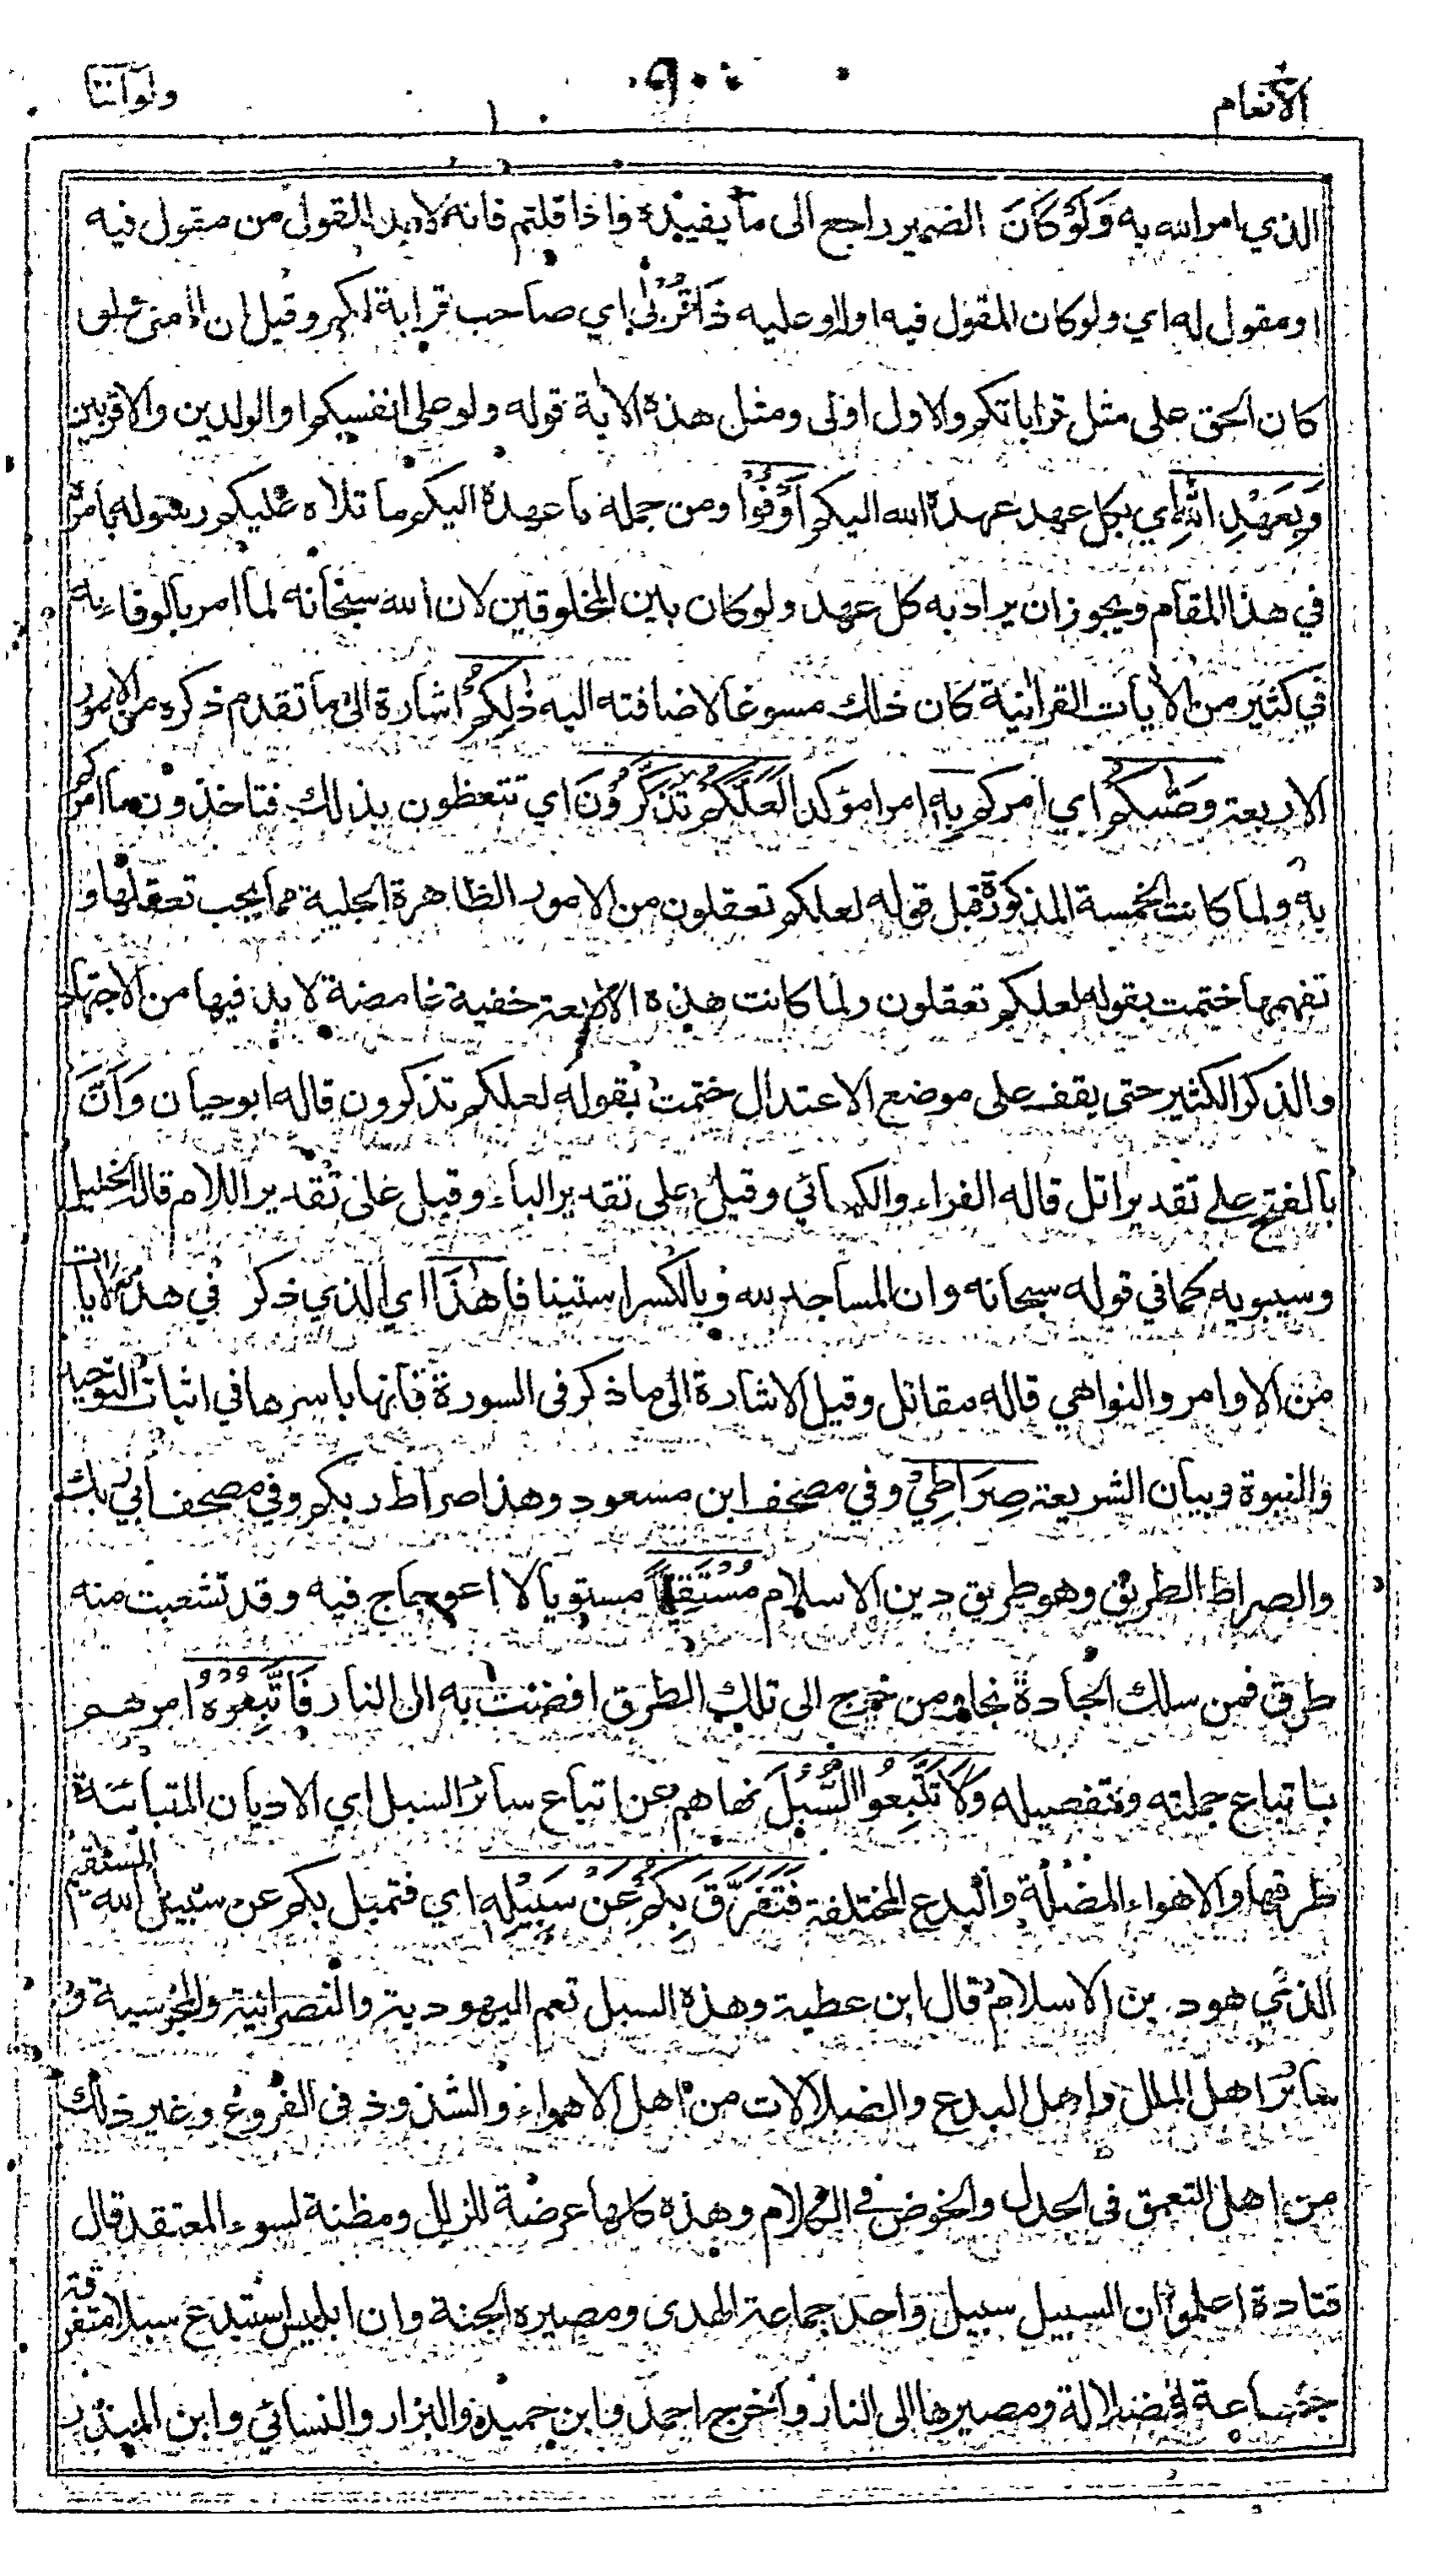 الأنعام
٩٠
ولوأننا
الذي امر الله به وَلَوْ كَانَ الضمير راجع الى ما يفيده واذا قلتم فانه لا بد للقول من مقول فيه
او مقول له اي ولو كان المقول فيه او له او عليه ذَا قُرْبٰى اي صاحب قرابة لكم وقيل ان المعنى ولو
كان الحق على مثل قراباتكم والاول اولى ومثل هذه الاية قوله ولو على انفسكم او الوالدين والاقربين
وَبِعَهْدِ اللّٰهِ اي بكل عهد عهده الله اليكم اَوْفُوْا ومن جملة ما عهده اليكم ما تلاه عليكم رسوله بامره
في هذا المقام ويجوز ان يراد به كل عهد ولو كان بين المخلوقين لان الله سبحانه لما امر بالوفاء به
في كثير من الأيات القرانية كان ذلك مسوغا لاضافته اليه ذٰلِكُمْ اشارة الى ما تقدم ذكره من الامور
الاربعة وَصّٰىكُمْ اي امركم بِهٖ امرا مؤكدا لَعَلَّكُمْ تَذَكَّرُوْنَ اي تتعظون بذلك فتاخذون ما امركم
به ولما كانت الخمسة المذكورة قبل قوله لعلكم تعقلون من الامور الظاهرة الجلية مما يجب تعقلها و
تفهمها ختمت بقوله لعلكم تعقلون ولما كانت هذه الاربعة خفية غامضة لا بد فيها من الاجتهاد
والذكر الكثير حتى يقف على موضع الاعتدال ختمت بقوله لعلكم تذكرون قاله ابو حيان وَاَنَّ
بالفتح على تقدير اتل قاله الفراء والكسائي وقيل على تقدير الباء وقيل على تقدير اللام قاله الخليل
وسيبويه كما في قوله سبحانه وان المساجد لله وبالكسر استينافا هٰذَا اي الذي ذكر في هذه الأيات
من الاوامر والنواهي قاله مقاتل وقيل الاشارة الى ما ذكر في السورة فانها باسرها في اثبات التوحيد
والنبوة وبيان الشريعة صِرَاطِيْ وفي مصحف ابن مسعود وهذا صراط ربكم وفي مصحف أبي ربك
والصراط الطريق وهو طريق دين الاسلام مُسْتَقِيْمًا مستويا لا اعوجاج فيه وقد تشعبت منه
طرق فمن سلك الجادة نجا ومن خرج الى تلك الطرق افضت به الى النار فَاتَّبِعُوْهُ امرهم
باتباع جملته وتفصيله وَلَا تَتَّبِعُوا السُّبُلَ نهاهم عن اتباع سائر السبل اي الاديان المتباينة
طرقها والاهواء المضلة والبدع المختلفة فَتَفَرَّقَ بِكُمْ عَنْ سَبِيْلِهٖ اي فتميل بكم عن سبيل الله المستقيم
الذي هو دين الاسلام قال ابن عطية وهذه السبل تعم اليهودية والنصرانية والمجوسية و
سائر اهل الملل واهل البدع والضلالات من اهل الاهواء والشذوذ في الفروع وغير ذلك
من اهل التعمق في الجدل والخوض في الكلام وهذه كلها عرضة للزلل ومظنة لسوء المعتقد قال
قتادة اعلموا ان السبيل سبيل واحد جماعة الهدى ومصيره الجنة وان ابليس استبدع سبلا متفرقة
جماعة الضلالة ومصيرها الى النار واخرج احمد وابن حميد والبزار والنسائي وابن المنذر